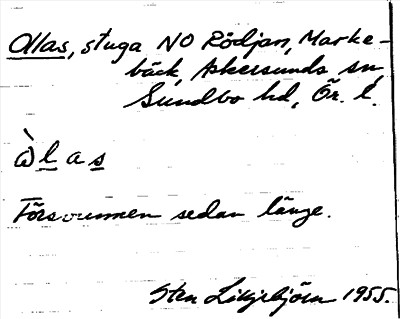 Ollas, stuga NO Rödjan, Marke-
bäck, Askersunds sn,
Sundbo hd, Ör. l.
òl a s
Försvunnen sedan länge.
Sten 1955.